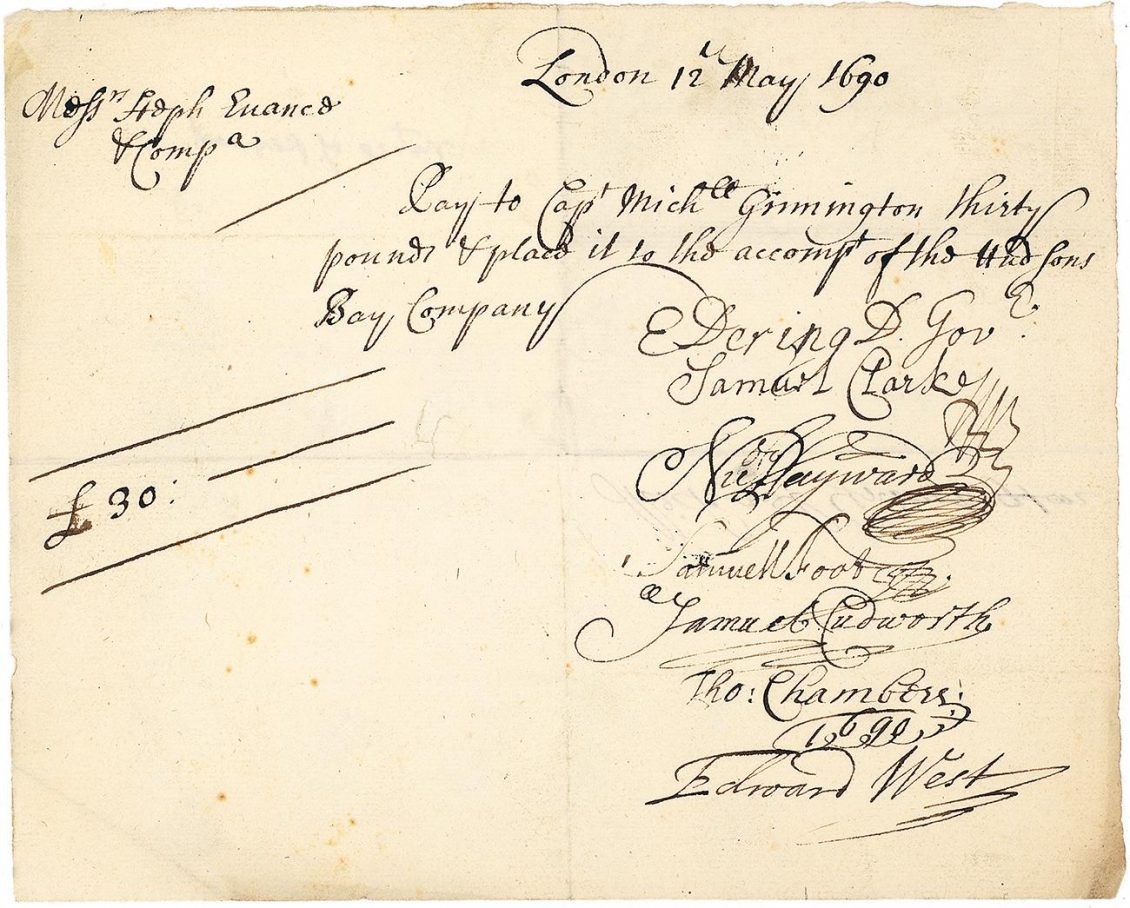 London 12th May 1690
Messrs Steph Evance
& Compa
Pay to Capt Michll Grimington thirty
pounds & place it to the accompt of the Hudsons
Bay Company
E Dering D. Govr.
Samuel Clarke
£30:
Nic Hayward
Samuell Foot
Samuel Cudworth
Tho: Chambers:
1690
Edward West